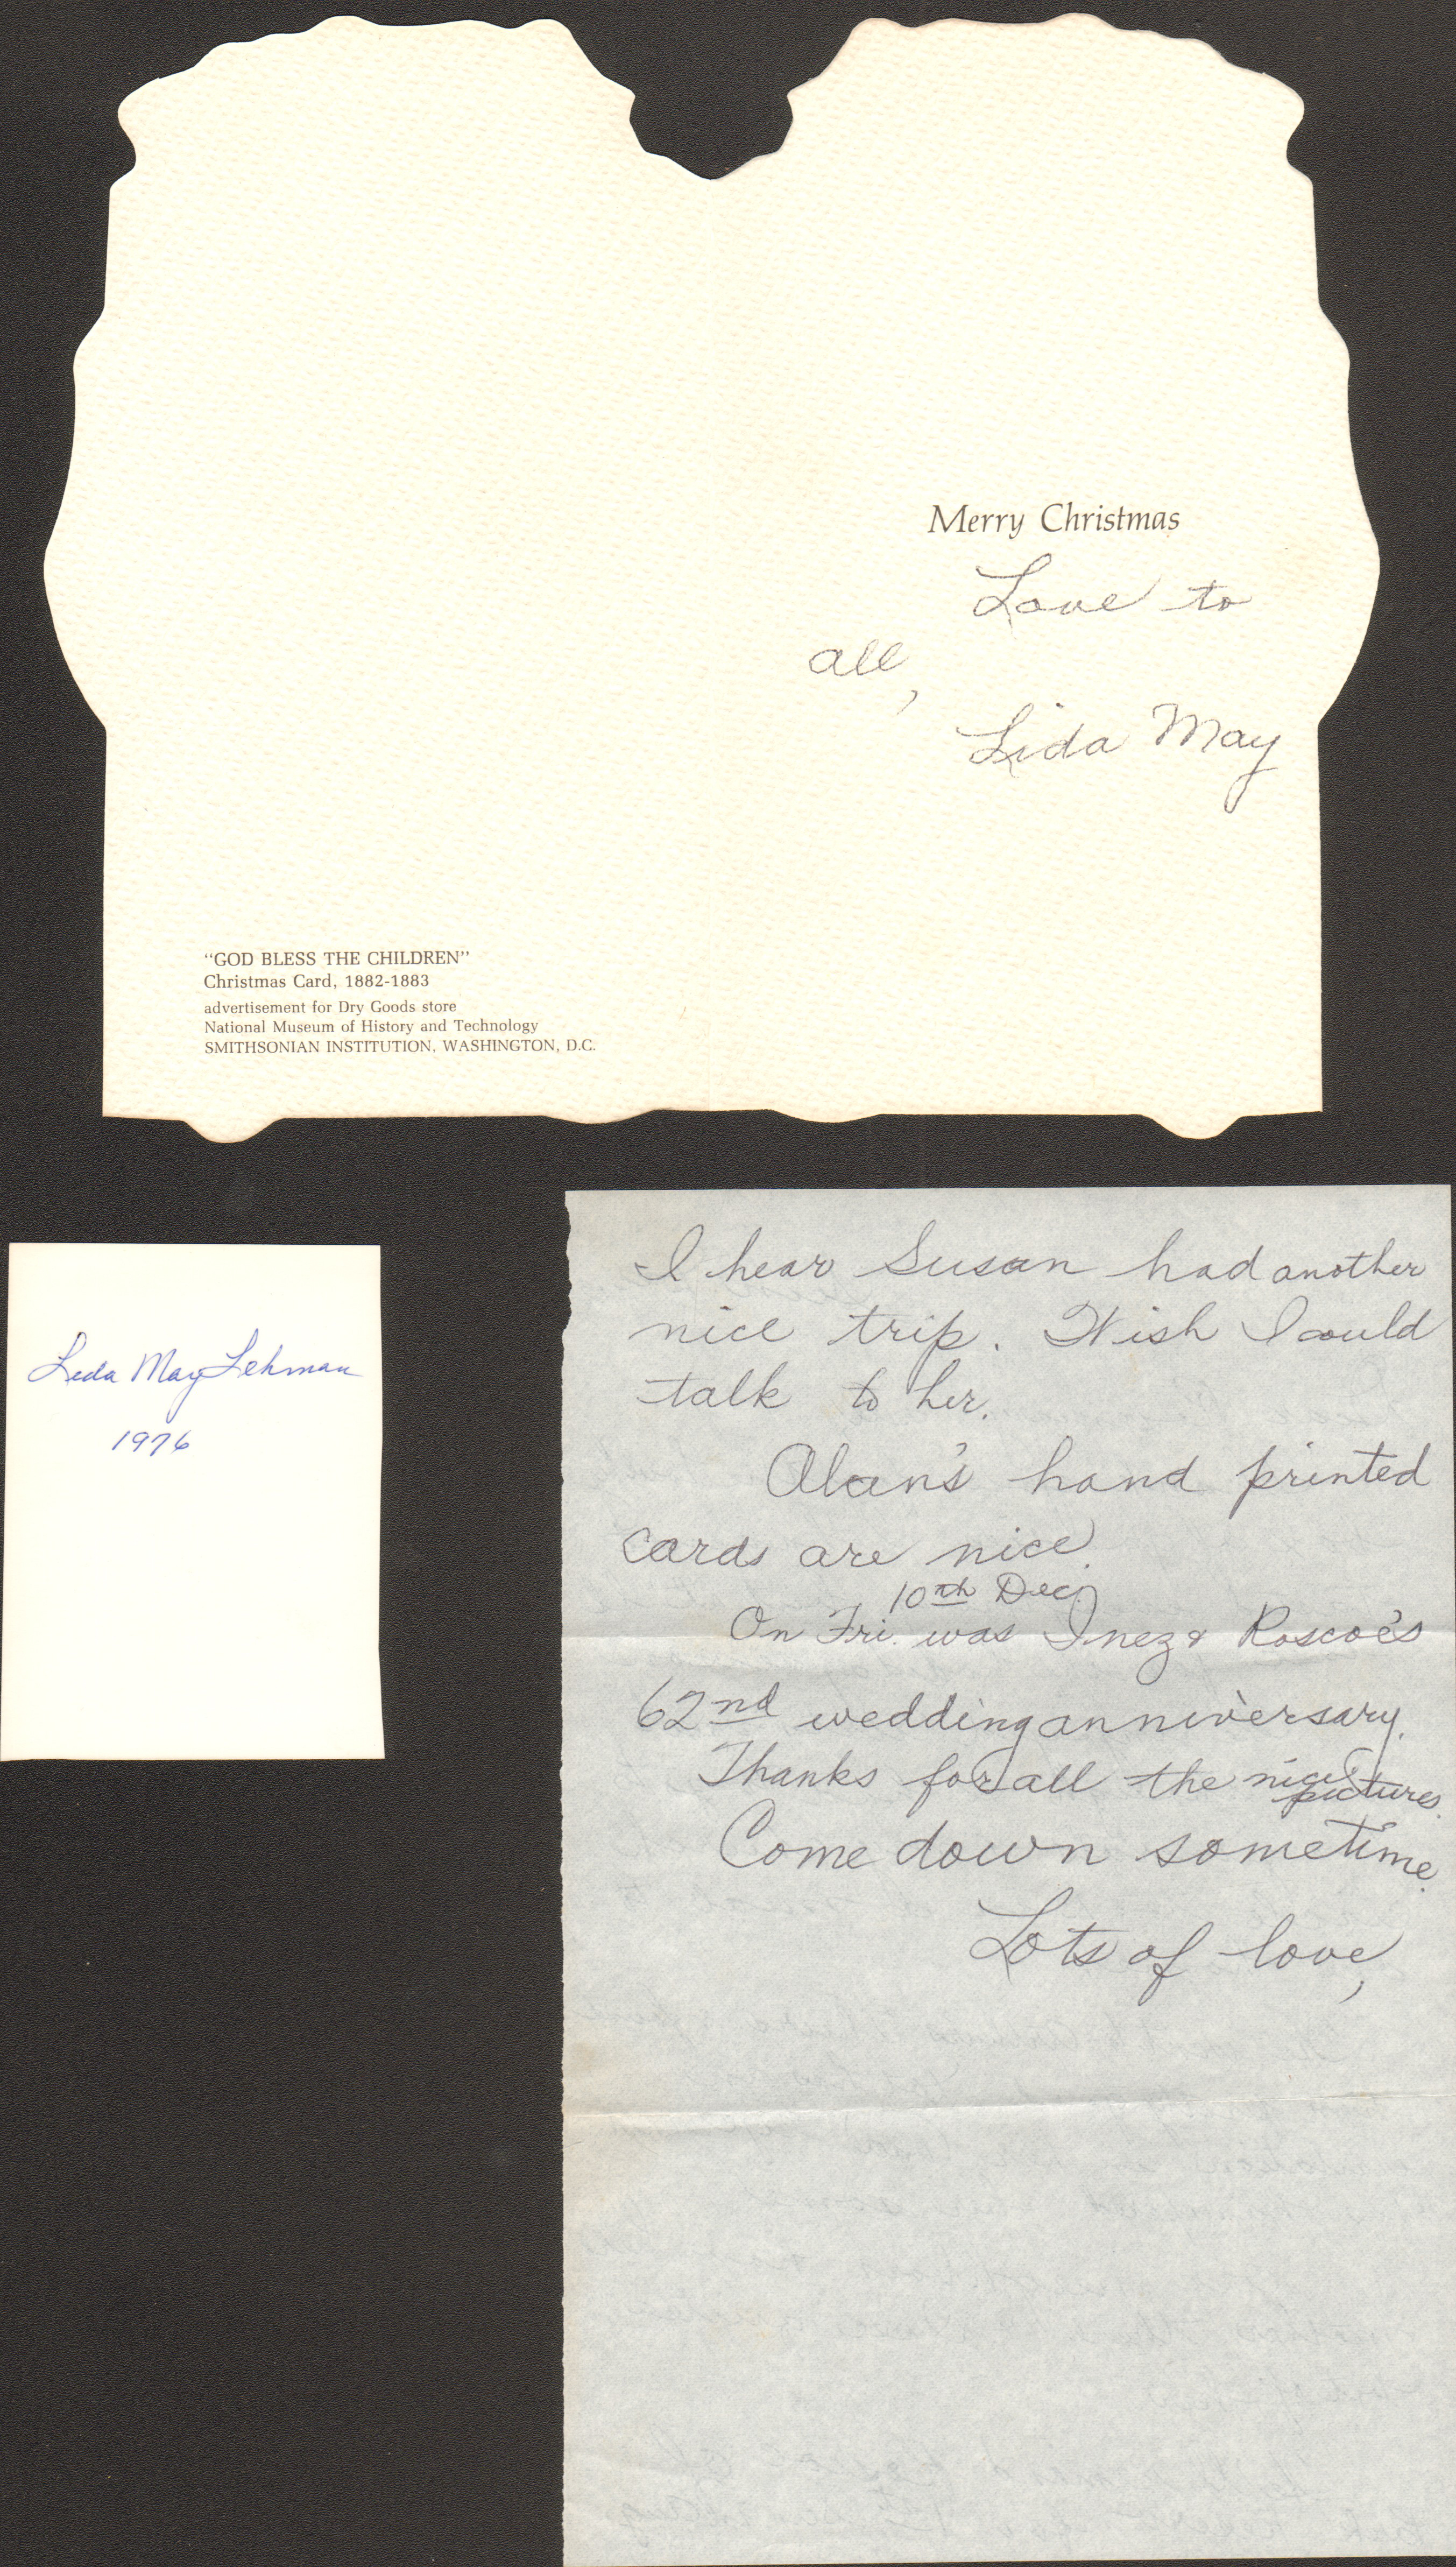 Merry Christmas
Love to
all,
Lida May
"GOD BLESS THE CHILDREN"
Christmas Card, 1882-1883
advertisement for Dry Goods store
National Museum of History and Technology
SMITHSONIAN INSTITUTION, WASHINGTON, D.C.
Lida May Lehman
1976
I hear Susan had another
nice trip. Wish I could
talk to her.
Alan's hand printed
cards are nice.
10th Dec.
On Fri. was Inez & Roscoe's
62nd wedding anniversary.
Thanks for all the nice
pictures.
Come down sometime.
Lots of love,